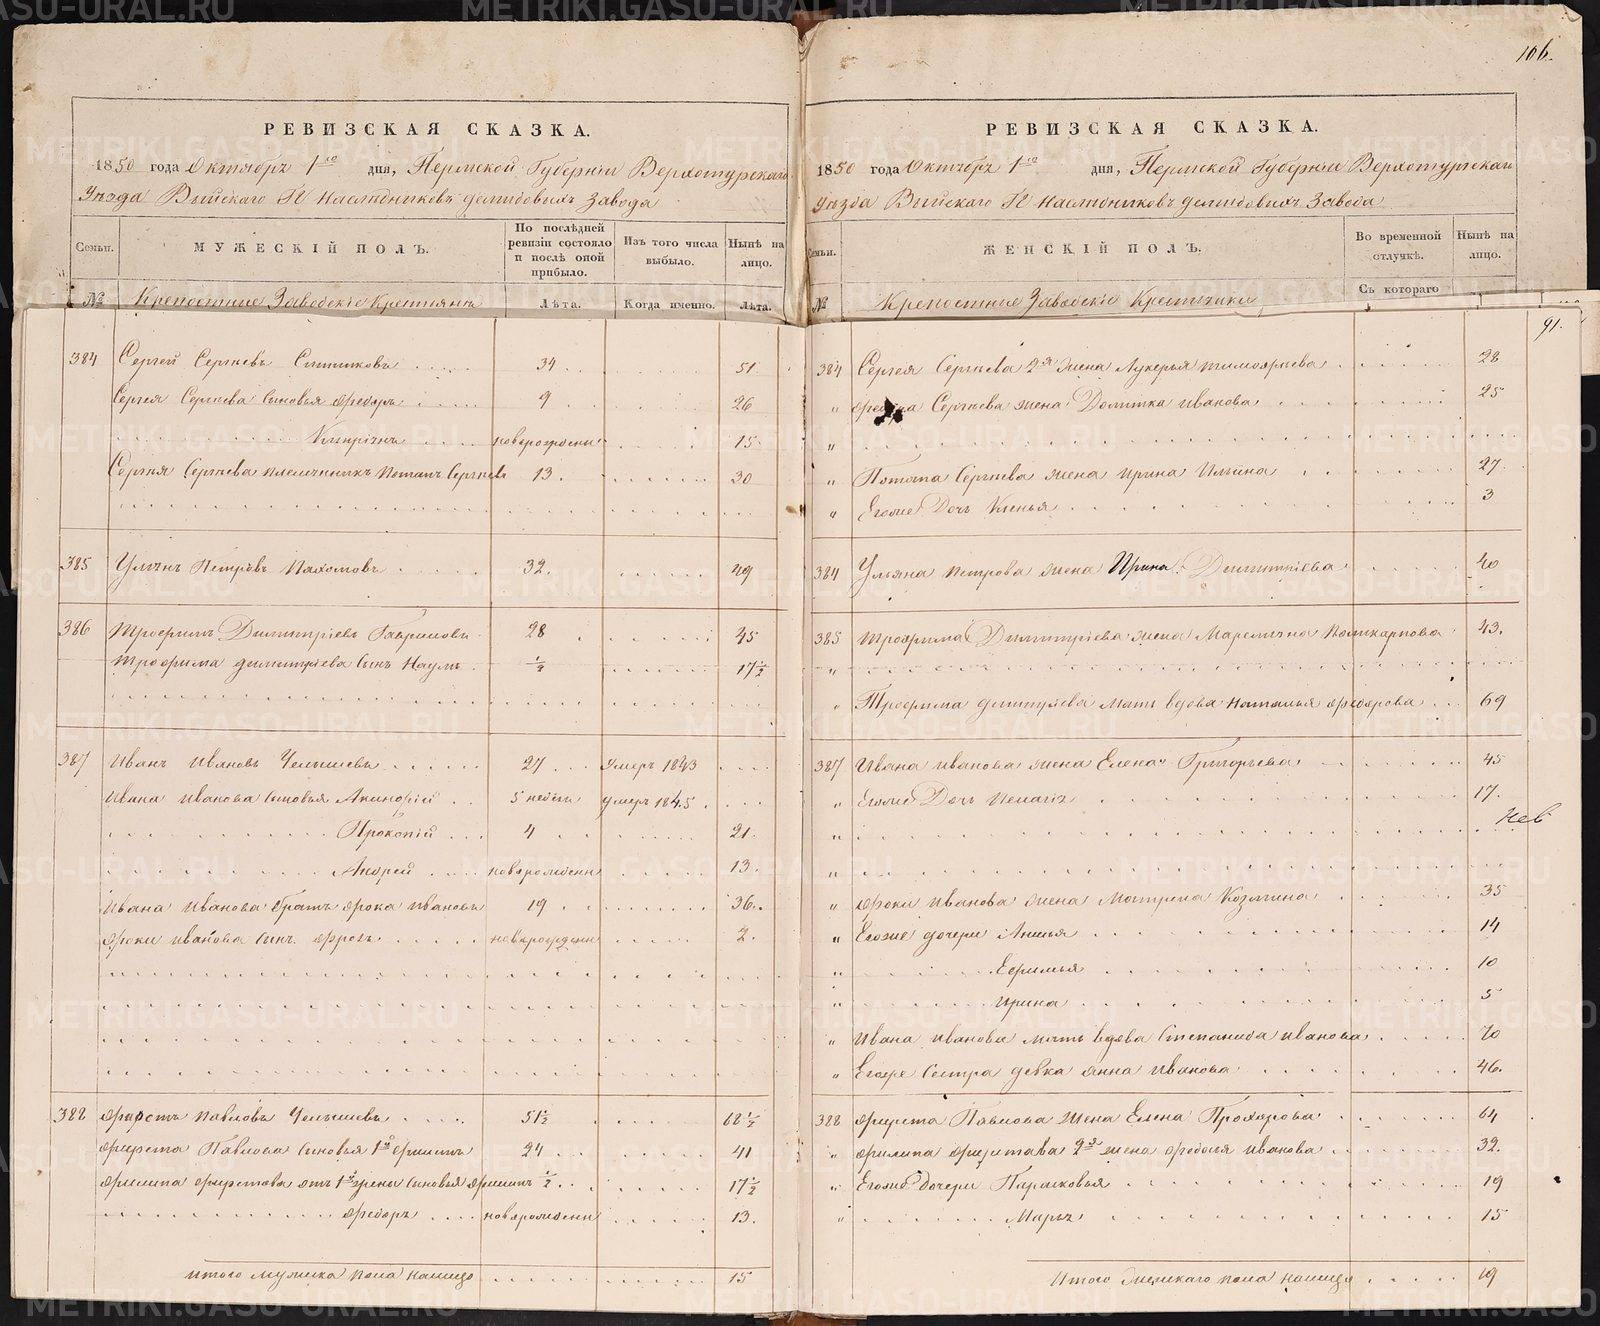 106.
РЕВИЗСКАЯ СКАЗКА.
1850 года Октября 1го дня, Пермской Губерніи Верхотурскаго
Уѣзда Выйскаго Гг Наслѣдниковъ Демидовыхъ Завода
Семьи.
МУЖЕСКІЙ ПОЛЪ.
По последней ревизіи состояло и послѣ оной прибыло.
Изъ того числа выбыло.
Нынѣ на лицо.
№ Крепостные Заводскіе Крестьяне Лѣта. Когда именно. Лѣта.
384 Сергей Сергѣевъ 34 51
Сергея Сергѣева сыновья Ѳедоръ 9 26
новорожденъ 15
Сергѣя Сергѣева племянникъ Потапъ Сергѣевъ 13. 30
385 Ульянъ Петровъ Пахомовъ 32. 49
386 Трофимъ Димитріевъ 28 45
Трофима Димитріева сынъ Наумъ ½ 17½
387 Иванъ Ивановъ Челышевъ 27 умеръ 1843
Ивана Иванова сыновья 5 недѣль умеръ 1845
Прокопій 4 21.
Андрей новорожденъ 13.
Ивана Иванова братъ Фока Ивановъ 19 36.
Фоки Иванова сынъ Фролъ новорожденъ 2.
388 Павловъ Челышевъ 51½ 68½
Павлова сыновья 1й Филипъ 24 41
Филипа отъ 1й жены сыновья ½ 17½
Ѳедоръ новорожденъ 13.
Итого мужска пола налицо 15
РЕВИЗСКАЯ СКАЗКА.
1850 года Октября 1го дня, Пермской Губерніи Верхотурскаго
Уѣзда Выйскаго Гг Наслѣдниковъ Демидовыхъ Завода
Семьи.
ЖЕНСКІЙ ПОЛЪ.
Во временной отлучкѣ.
Нынѣ на лицо.
№ Крепостные Заводскіе Крестьянки Съ котораго
91.
384 Сергея Сергѣева 2я жена Лукерья Тимофѣева 28
" Ѳедора Сергѣева жена Домника Иванова 25
"
" Потапа Сергѣева жена Ирина Ильина 27.
" Егоже дочь Ксенья 3
384 Ульяна Петрова жена Ирина Димитріева 40
385 Трофима Димитріева жена Поликарпова 43.
"
" Трофима Димитріева мать вдова Наталья Ѳедорова 69
387 Ивана Иванова жена Елена Григорьева 45
" Егоже дочь Пелагія 17.
"
"
" Фоки Иванова жена Матрена Козмина 35
" Егоже дочери Анисья 14
" Ефимья 10
" Ирина 5
" Ивана Иванова мать вдова Степанида Иванова 70
" Егоже сестра девка Анна Иванова 46.
388 Павлова жена Елена Прохорова 64
" Филипа 2я жена Ѳедосья Иванова 32.
" Егоже дочери Парасковья 19
" Марья 15
Итого женскаго пола налицо 19